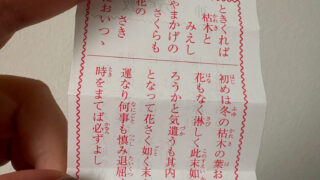 ときくれば
枯木と
みえし
やまかげの
さくらも
花の
さき
おいつゝ
初めは冬の枯木の葉お
花もなく淋しく此末如
ろうかと気遣うも其内
となって花さく如く末
運なり何事も慎み退屈
時をまてば必ずよし